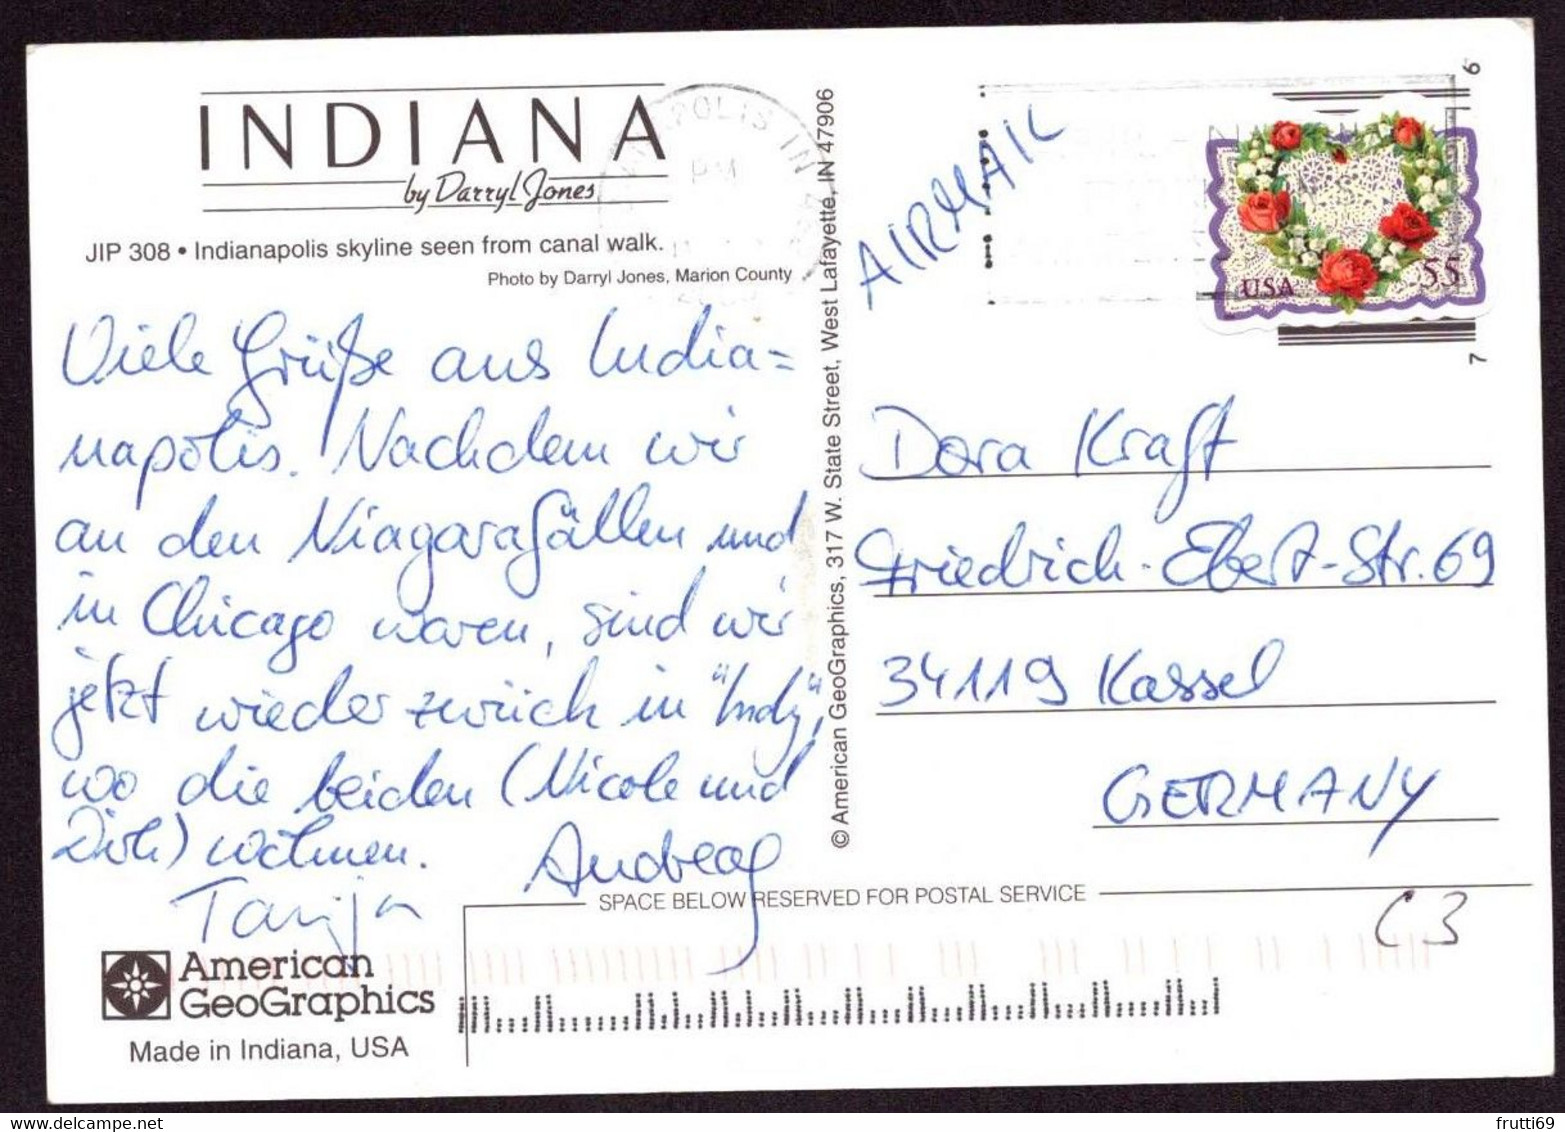 INDIANA
by Darryl Jones
JIP 308 • Indianapolis skyline seen from canal walk.
Photo by Darryl Jones, Marion County
Viele Grüße aus India=
napolis. Nachdem wir
an den Niagarafällen und
in Chicago waren, sind wir
jetzt wieder zurück in "Indy",
wo die beiden (Nicole und
Dirk) wohnen.
Tanja
Andreas
American
GeoGraphics
Made in Indiana, USA
© American GeoGraphics, 317 W. State Street, West Lafayette, IN 47906
POLIS IN
PM
AIRMAIL
USA
55
6
7
Dora Kraft
Friedrich-Ebert-Str. 69
34119 Kassel
GERMANY
SPACE BELOW RESERVED FOR POSTAL SERVICE
C3
frutti69